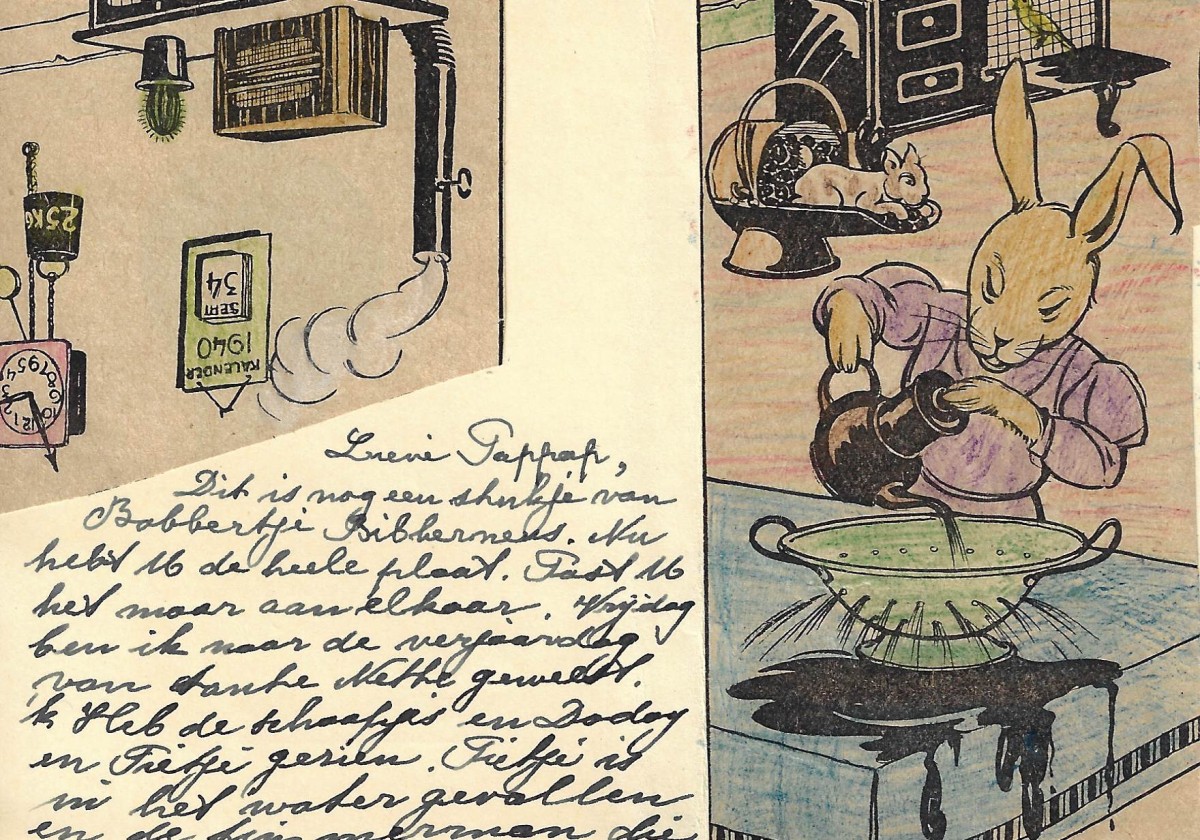 25KG
KALENDER
1940
SEPT
34
Lieve Pappap,
Dit is nog een stukje van
Bobbertje Bibberneus. Nu
hebt U de heele plaat. Past U
het maar aan elkaar. Vrijdag
ben ik naar de verjaardag
van tante Nette geweest.
'k Heb de schaapjes en Dodoy
en Fietje gezien. Fietje is
in het water gevallen
en de timmerman die